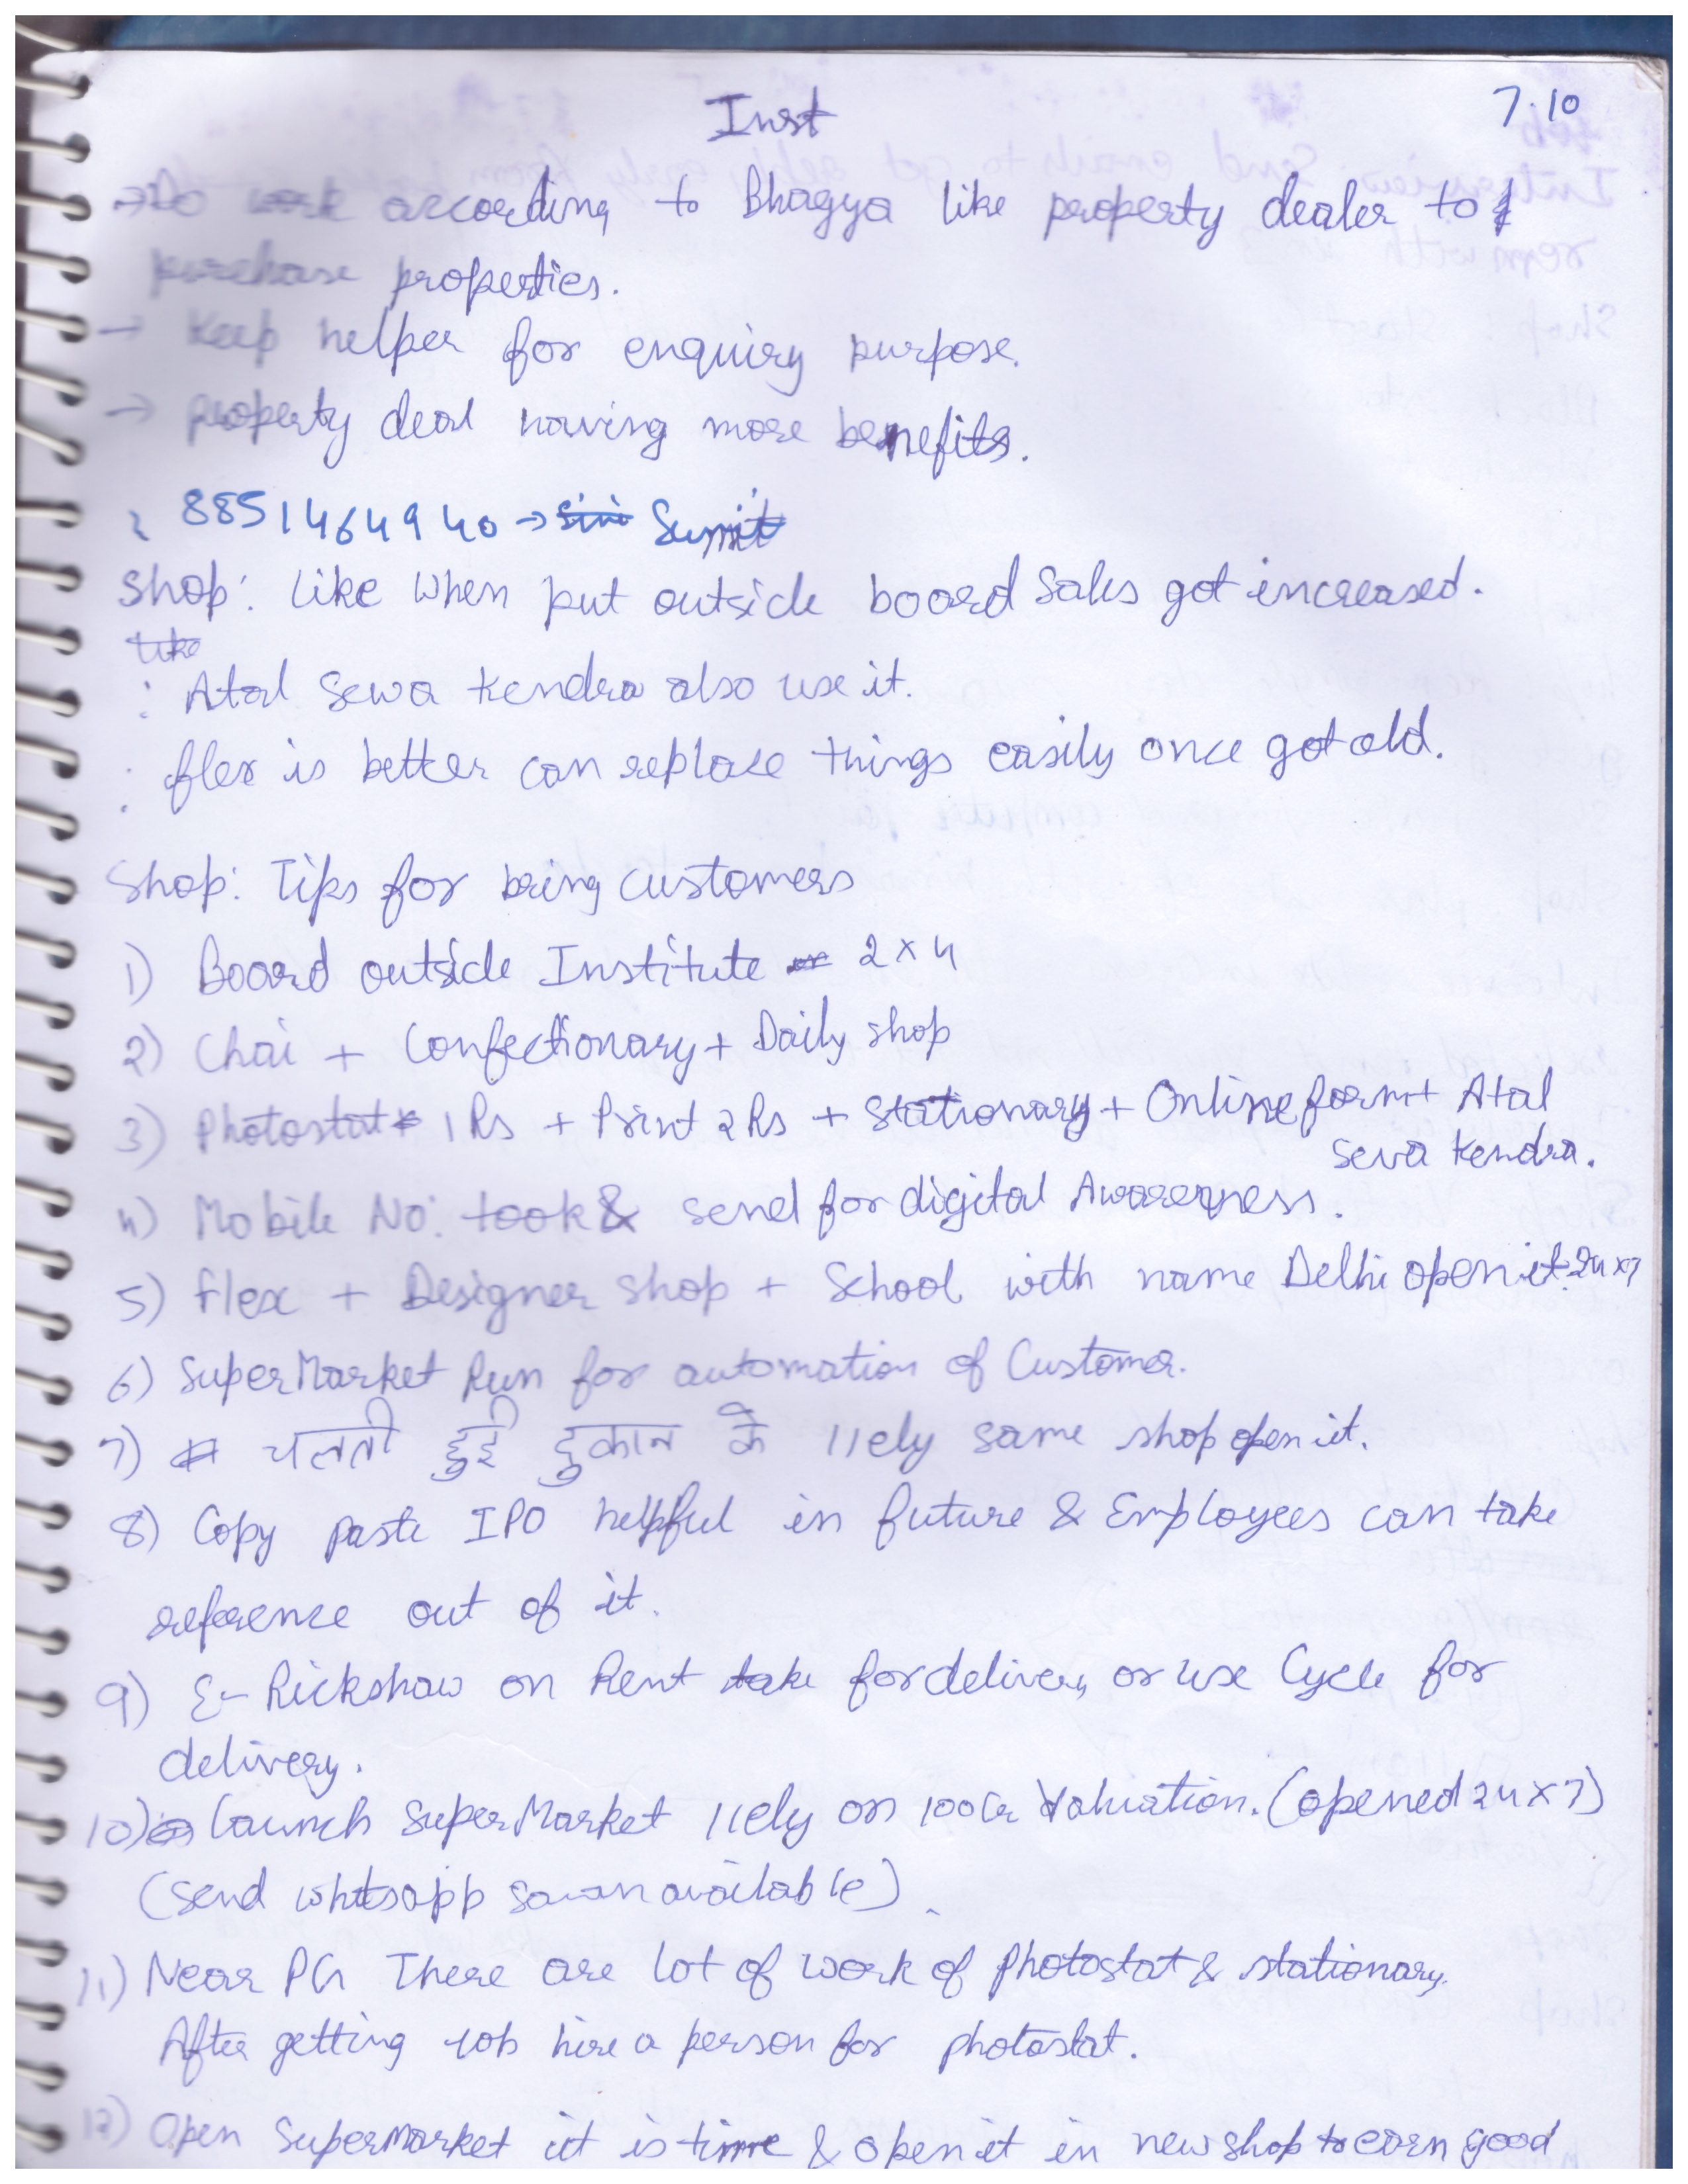 Inst
7.10
→ Do work according to Bhagya like property dealer to
purchase properties.
→ Keep helper for enquiry purpose.
→ property deal having more benefits.
: 8851464940 → Sumit
Shop: like When put outside board Sales got increased.
like
: Atal Sewa Kendra also use it.
: flex is better can replace things easily once got old.
Shop: Tips for bring customers
1) Board outside Institute 2 x 4
2) Chai + Confectionary + Daily shop
3) Photostat 1 Rs + Print 2 Rs + Stationary + Online form + Atal
Seva Kendra.
4) Mobile No: took & send for digital Awareness.
5) flex + Designer shop + School with name Delhi open it. 24 x 7
6) SuperMarket Run for automation of Customer.
7) चलती हुई दुकान के llely same shop open it.
8) Copy paste IPO helpful in future & Employees can take
reference out of it.
9) E-Rickshaw on Rent take for delivery or use Cycle for
delivery.
10) Launch SuperMarket llely on 100Cr Valuation. (opened 24 x 7)
(send whtsapp available)
11) Near PG There are lot of work of photostat & stationary.
After getting job hire a person for photostat.
12) Open Supermarket it is time & open it in new shop to earn good